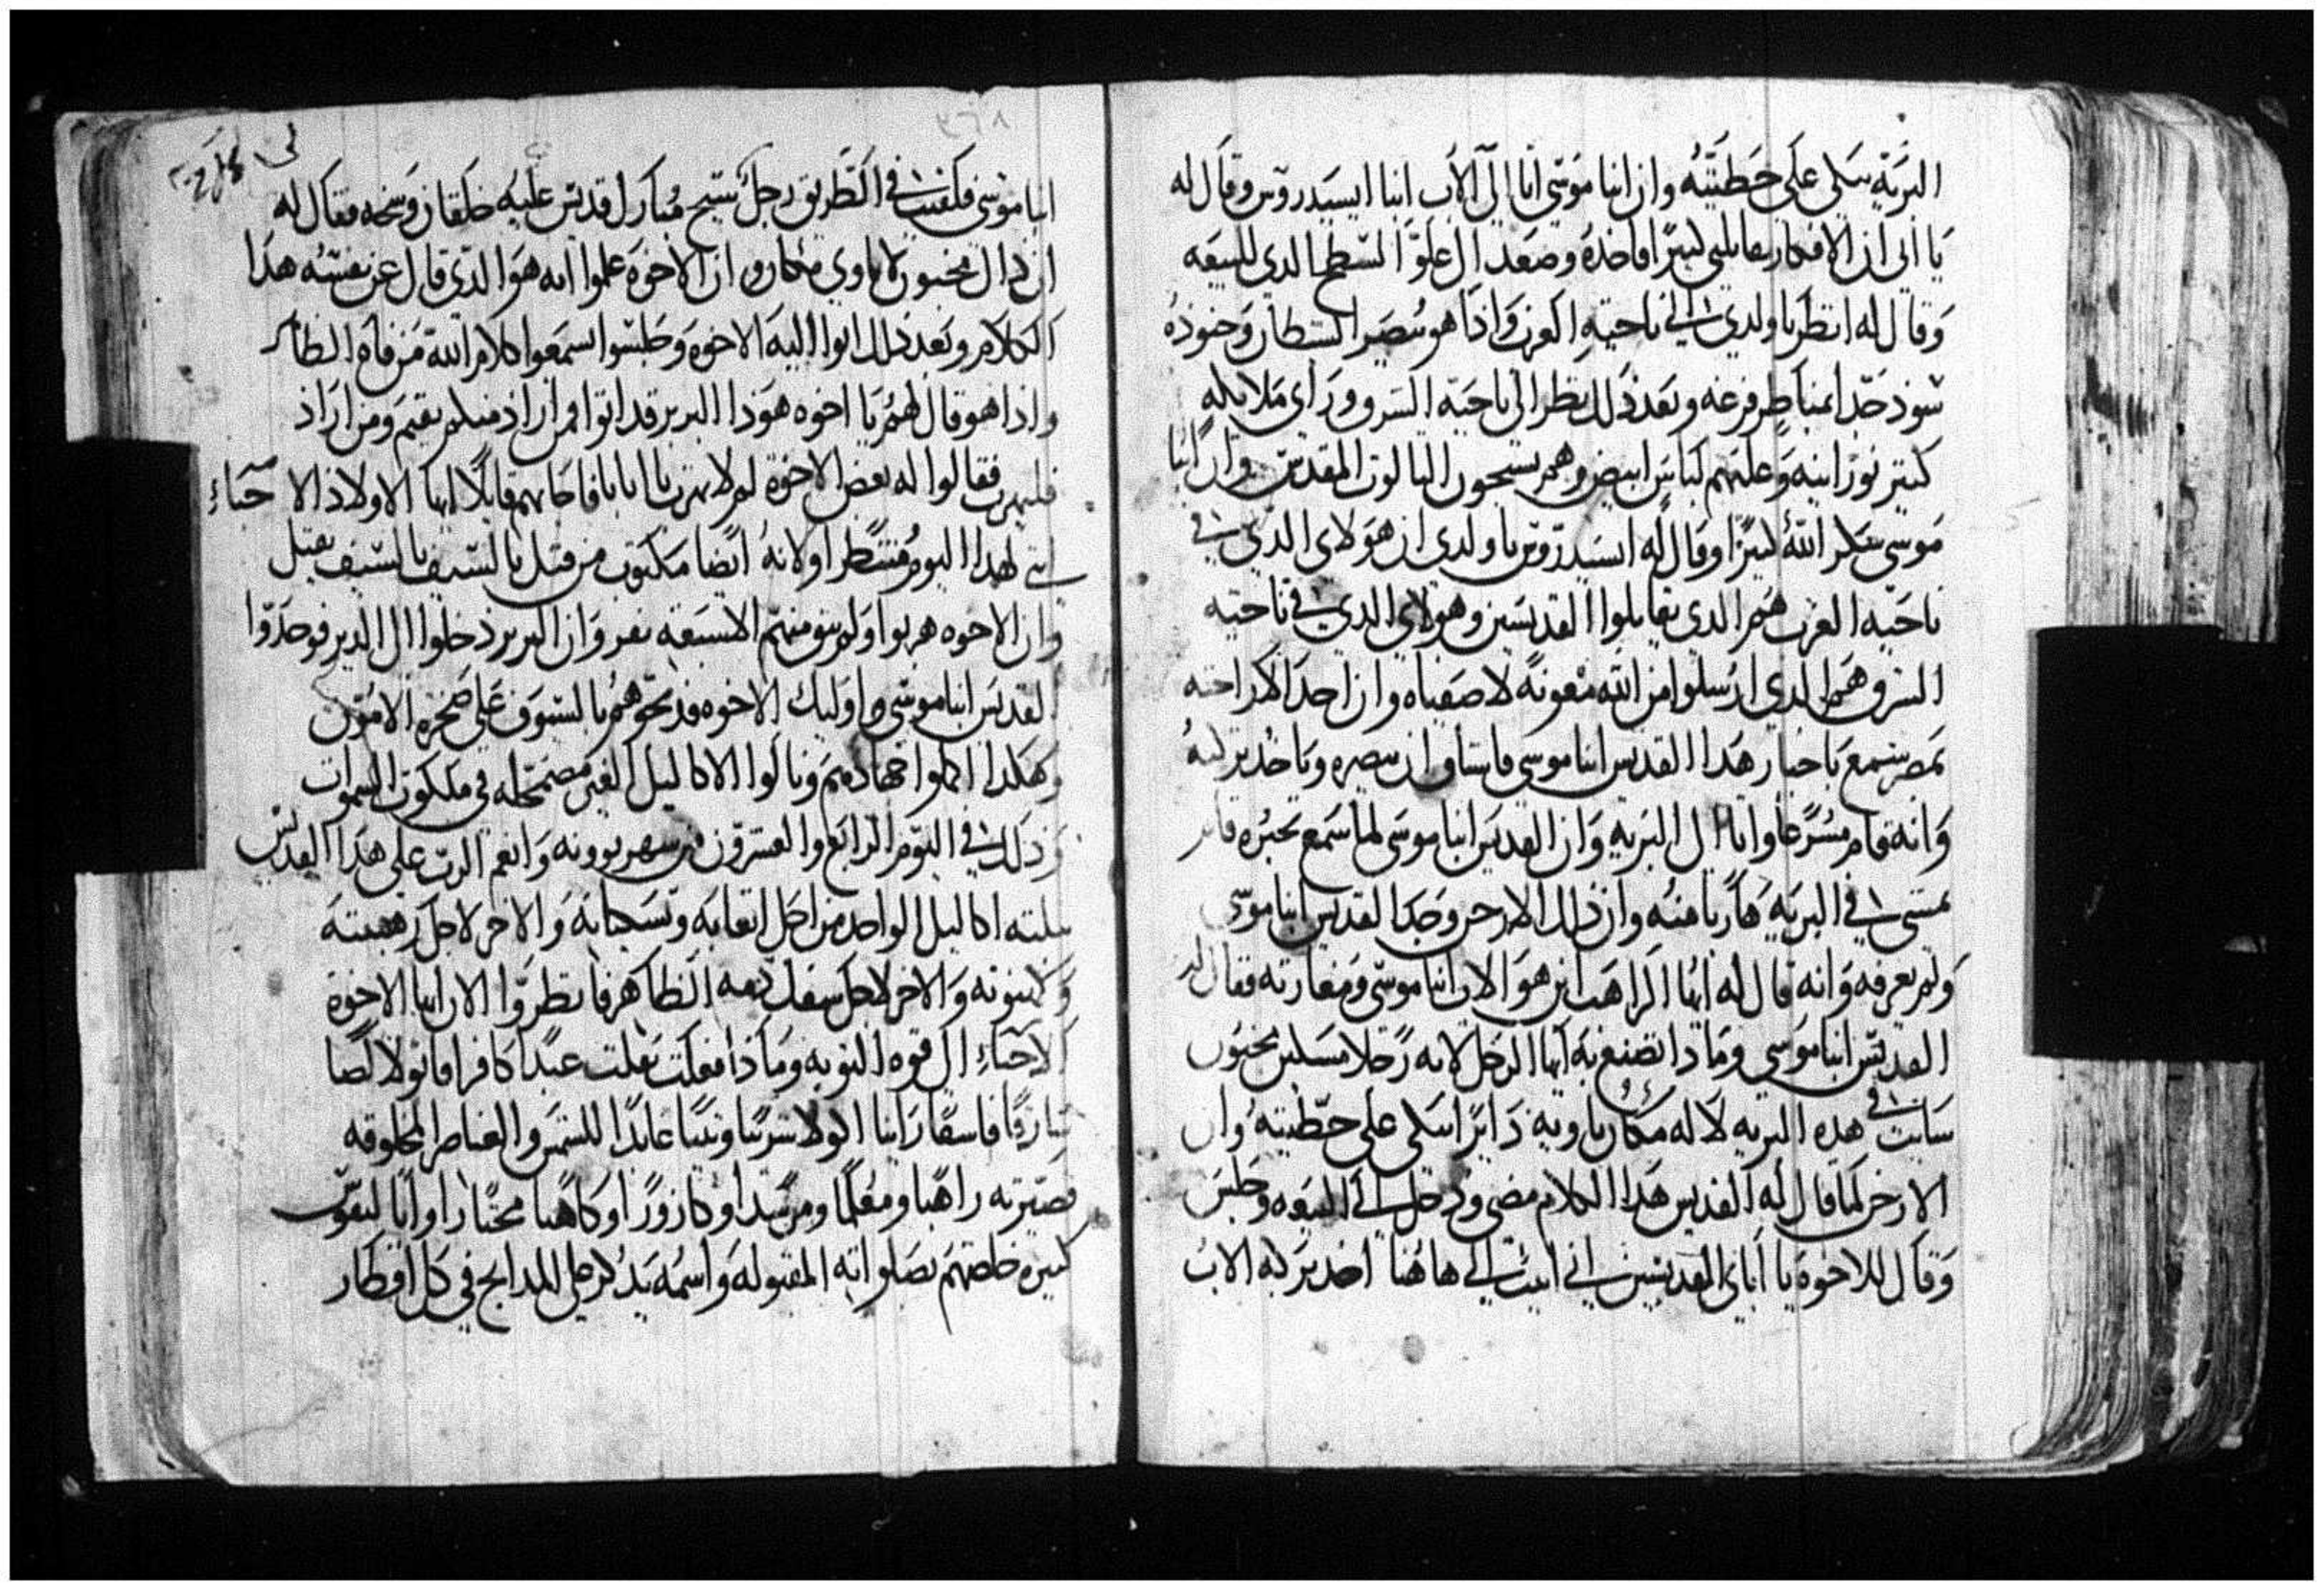 البرية يبكى على خطيته وان انبا موسى اتا الى الاب انبا ايسيدروس وقال له
يا ابى ان الافكار يقاتلنى كثيرًا فاخذه وصعد الى علو السطح الدى للبيعه
وقال له انظر يا ولدى الى ناحية الغرب واذا هو بنصر الشيطان وجنوده
سود جدا بمناظر فزعه وبعد ذلك نظر الى ناحية الشرق وراى ملايكه
كتير نورانيه وعليهم لباس ابيض وهم يسبحون التالوت المقدس وان انبا
موسى شكر الله كثيرًا وقال له ايسيدروس يا ولدى ان هولاى الدى فى
ناحية الغرب هم الدى يقاتلوا القديسين وهولاى الدى فى ناحية
الشرق هم الدى ارسلوا من الله معونة لاصفياه وان احد الاراخنه
بمصر سمع باخبار هدا القديس انبا موسى فاشتاق ان يبصره وياخد بركته
وانه قام مسرعًا واتا الى البريه وان القديس انبا موسى لما سمع بخبره قام
يمشى فى البريه هاربا منه وان ذلك الارخن وجد القديس انبا موسى
ولم يعرفه وانه قال له ايها الراهب اين هو الاب انبا موسى ومغارته فقال له
القديس انبا موسى وما دا تصنع به ايها الرجل لانه رجلا مسكين مجنون
سايب فى هده البريه لا له مكان ياويه دايرًا يبكى على خطيته وان
الارخن لما قال له القديس هدا الكلام مضى ودخل الى البيعه وجلس
وقال للاخوه يا اباى القديسين انى اتيت الى هاهنا اخد بركه الاب
انبا موسى فلقينى فى الطريق رجل شيخ مبارك قديس عليه خلقان وسخه فقال له
ان داك مجنون لا ياوى مكان وان الاخوه علموا انه هو الدى قال عن نفسه هدا
الكلام وبعد ذلك اتوا اليه الاخوه وجلسوا يسمعوا كلام الله من فاه الطاهر
واذا هو قال لهم يا اخوه هوذا البربر قد اتوا فمن اراد منكم يقيم ومن اراد
فليهرب فقالوا له بعض الاخوة لم لا تهرب يا ابانا فاجابهم قايلًا ايها الاولاد الاحباء
انى لهدا اليوم منتظر اولا لانه ايضا مكتوب من قتل بالسيف بالسيف يقتل
وان الاخوه هربوا ولم يبق منهم الا سبعة نفر وان البربر دخلوا الى الدير فوجدوا
القديس انبا موسى واوليك الاخوه فدبحوهم بالسيوف على صخرة الامون
وهكدا اكملوا جهادهم ونالوا الاكاليل الغير مضمحله فى ملكوت السموات
وذلك فى اليوم الرابع والعشرون من شهر بوونه وانعم الرب على هدا القديس
بتلته اكاليل الواحد من اجل اتعابه ونسكياته والاخر لاجل رهبنته
وكهنوته والاخر لاجل سفك دمه الطاهر فانظروا الان ايها الاخوة
الاحباء الى قوه التوبه وما ذا فعلت نقلت عبدًا كافرا قاتولا لصًا
سارقًا فاسقًا زانيا اكولا شريبًا وثنيًا عابدًا للشمس والعناصر المخلوقه
فصيرته راهبًا ومعلمًا ومرشدا وكاروزًا وكاهنا مختارا وابًا لنفوس
كتيره خلصهم بصلواته المقبوله واسمه يدكر على المدابح فى كل اقطار